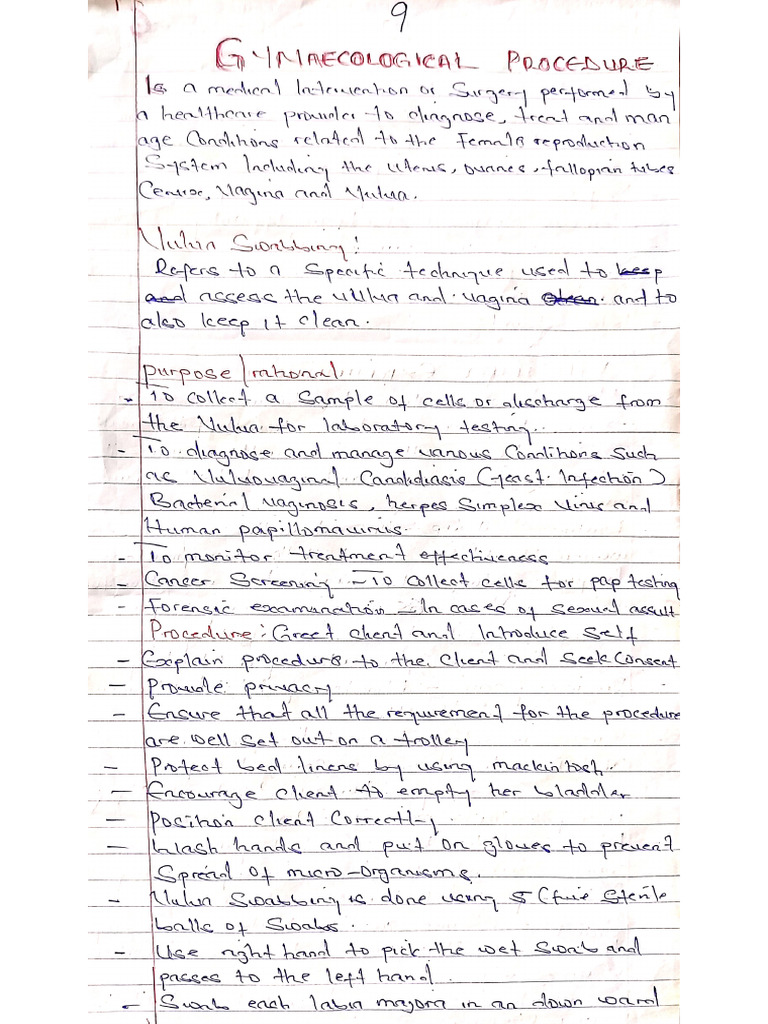 9
GYNAECOLOGICAL PROCEDURE
Is a medical Intervention or Surgery performed by
a healthcare provider to diagnose, treat and man
age Conditions related to the Female reproduction
System Including the Uterus, ovaries, fallopian tubes
Cervix, Vagina and Vulva.
Vulva Swabbing:
Refers to a Specific technique used to keep
and assess the vulva and vagina clean. and to
also keep it clean.
Purpose / rational
- To collect a Sample of cells or discharge from
the Vulva for laboratory testing.
- To diagnose and manage various Conditions Such
as Vulvovaginal Candidiasis (yeast Infection)
Bacterial vaginosis, herpes Simplex Virus and
Human papillomavirus.
- To monitor treatment effectiveness
- Cancer Screening - To collect cells for pap testing
- Forensic examination - In cases of Sexual assult
Procedure: Greet client and Introduce Self
- Explain procedure to the Client and Seek Consent
- Provide privacy
- Ensure that all the requirement for the procedure
are well set out on a trolley
- Protect bed linens by using mackintosh.
- Encourage Client to empty her bladder
- Position Client Correctly
- Wash hands and put on gloves to prevent
Spread of micro-organisms.
- Vulva Swabbing is done using 5 (five Sterile
balls of Swabs.
- Use right hand to pick the wet Swab and
passes to the left hand.
- Swab each labia majora in an down ward